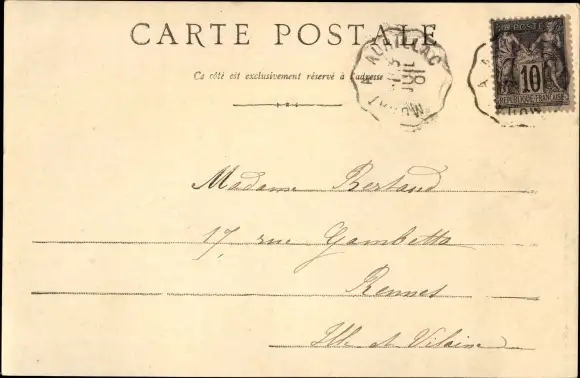 CARTE POSTALE
Ce côté est exclusivement réservé à l'adresse
A AURILLAC
JUIL
01
POSTE
10
REPUBLIQUE FRANÇAISE
Madame Bertaud
17, rue Gambetta
Rennes
Ille et Vilaine